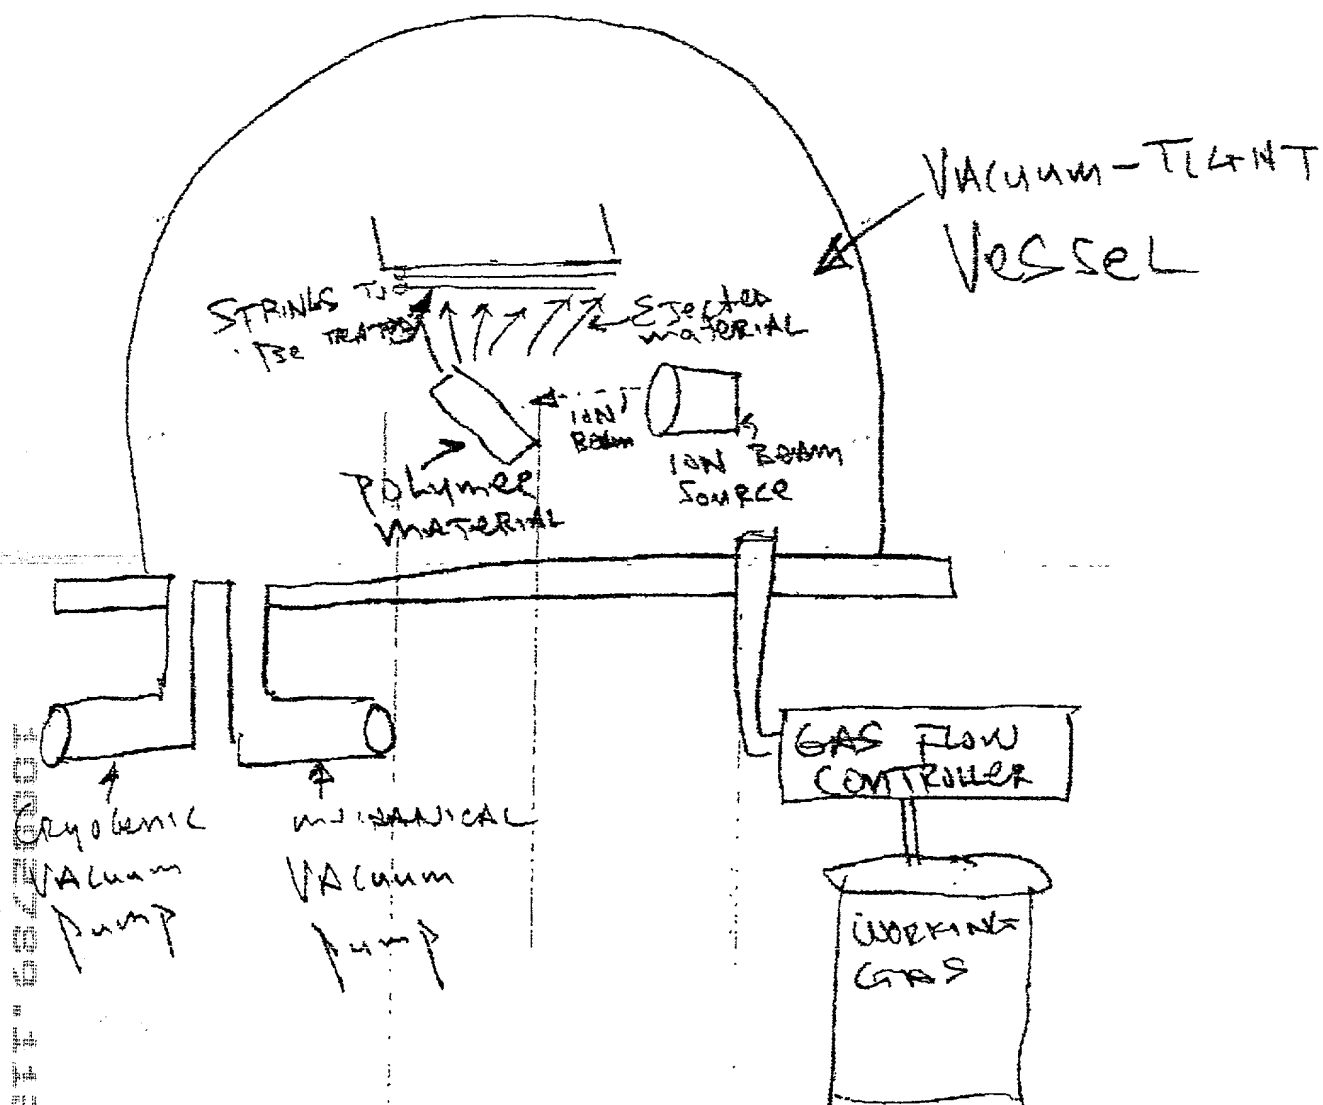 VACUUM-TIGHT
VESSEL
STRINGS TO
BE TREATED
EJECTED
MATERIAL
ION
BEAM
ION BEAM
SOURCE
POLYMER
MATERIAL
GAS FLOW
CONTROLLER
CRYOGENIC
VACUUM
PUMP
MECHANICAL
VACUUM
PUMP
WORKING
GAS